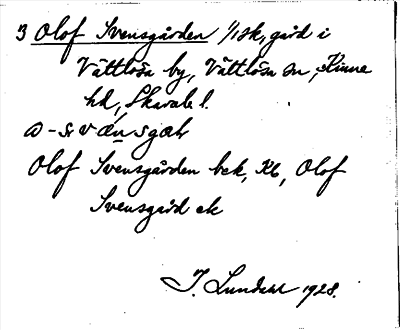 3 Olof Svensgården 1/1 sk, gård i
Vättlösa by, Vättlösa sn, Kinne
hd, Skarab l.
a - sv æn sgaḷr
Olof Svensgården bek, Kb, Olof
Svensgård ek
I. Lundahl 1928.